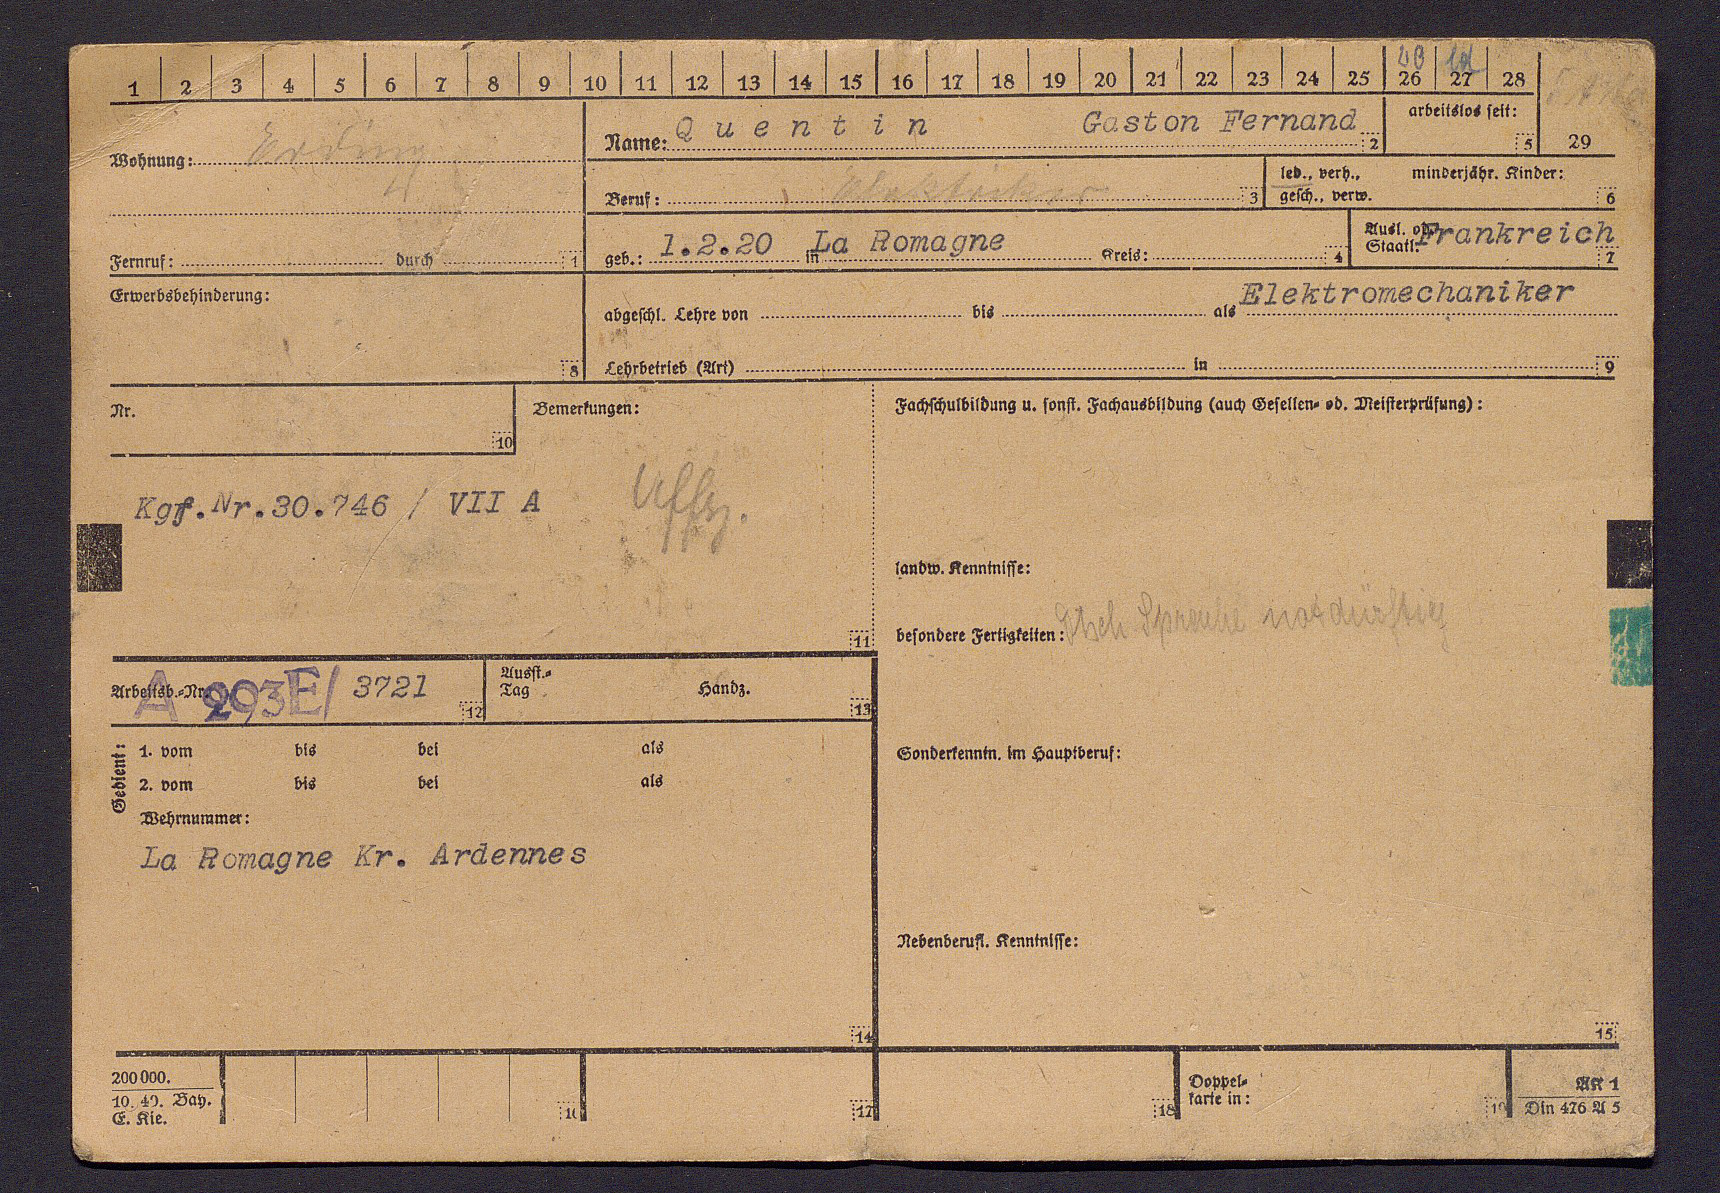 1 2 3 4 5 6 7 8 9 10 11 12 13 14 15 16 17 18 19 20 21 22 23 24 25 26 27 28
29
Wohnung: Erding
Fernruf: durch 1
Name: Quentin Gaston Fernand 2
arbeitslos seit: 5
Beruf: Elektriker 3
led., verh.,
gesch., verw.
minderjähr. Kinder: 6
geb.: 1.2.20 in La Romagne Kreis: 4
Ausl. od.
Staatl: Frankreich 7
Erwerbsbehinderung: 8
abgeschl. Lehre von bis als Elektromechaniker
Lehrbetrieb (Art) in 9
Nr. 10
Bemerkungen:
Kgf.Nr.30.746 / VII A
Uffz.
11
Fachschulbildung u. sonst. Fachausbildung (auch Gesellen- od. Meisterprüfung):
landw. Kenntnisse:
besondere Fertigkeiten: Dtsch Sprache notdürftig
Arbeitsb.-Nr. A 293E/ 3721 12
Ausst.-
Tag Handz. 13
Gedient:
1. vom bis bei als
2. vom bis bei als
Wehrnummer:
La Romagne Kr. Ardennes
14
Sonderkenntn. im Hauptberuf:
Nebenberufl. Kenntnisse:
15
200 000.
10. 40. Bay.
E. Kie.
16
17
18
Doppel-
karte in: 19
AK 1
Din 476 A 5